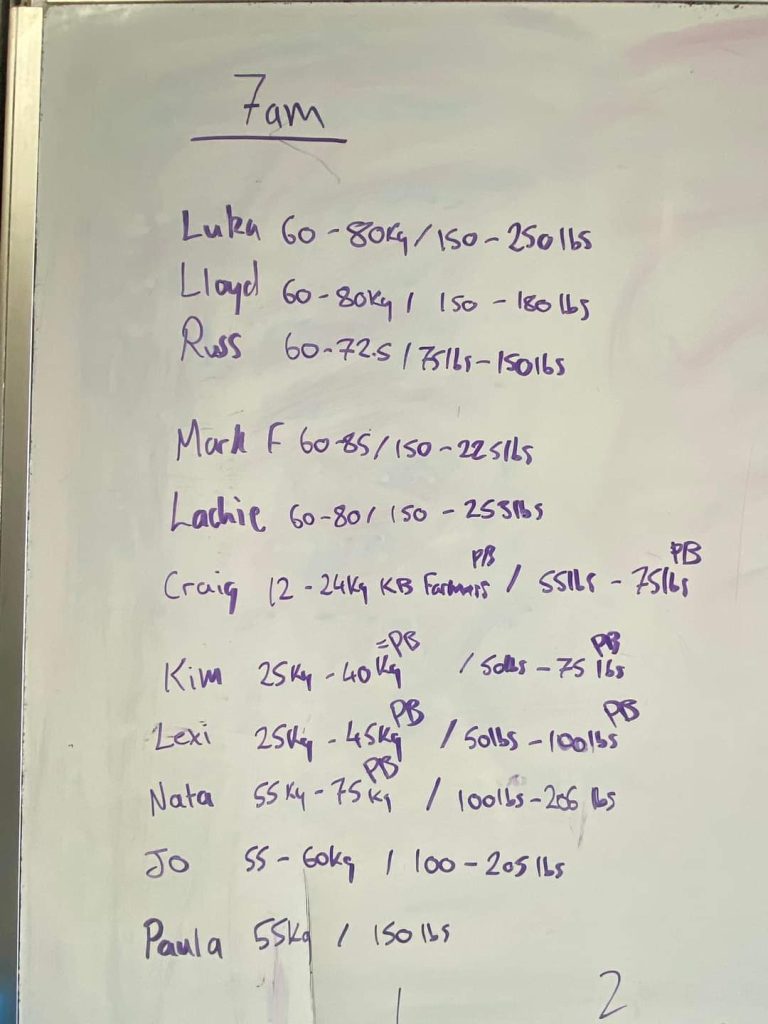 7am
Luka 60-80Kg/150-250lbs
Lloyd 60-80Kg/ 150 - 180lbs
Russ 60-72.5/75lbs-150lbs
Mark F 60-85/150-225lbs
Lachie 60-80/150 - 255lbs
Craig 12-24Kg KB Farmers PB / 55lbs - 75lbs PB
Kim 25Kg-40Kg =PB / 50lbs-75lbs PB
Lexi 25Kg-45Kg PB / 50lbs-100lbs PB
Nata 55Kg-75Kg PB / 100lbs-206 lbs
Jo 55-60kg / 100-205lbs
Paula 55Kg / 150lbs
1 2